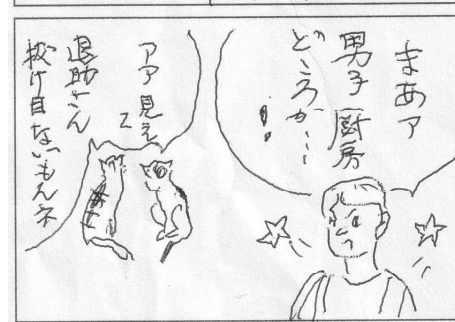 まあァ
男子厨房
どころか…
!!
アア見えて
退助さん
抜け目ないもんネ